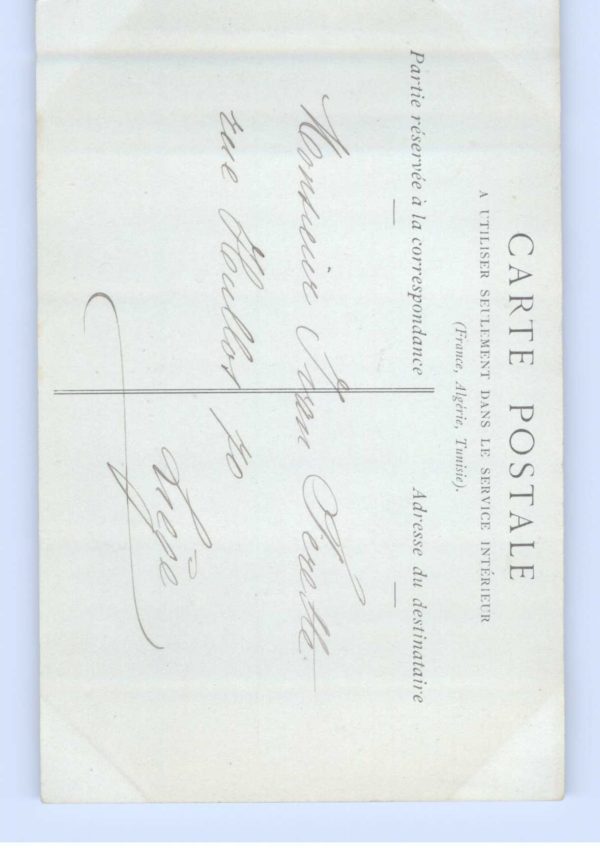 CARTE POSTALE
A UTILISER SEULEMENT DANS LE SERVICE INTÉRIEUR
(France, Algérie, Tunisie).
Partie réservée à la correspondance
Adresse du destinataire
Monsieur
rue 70
Liège